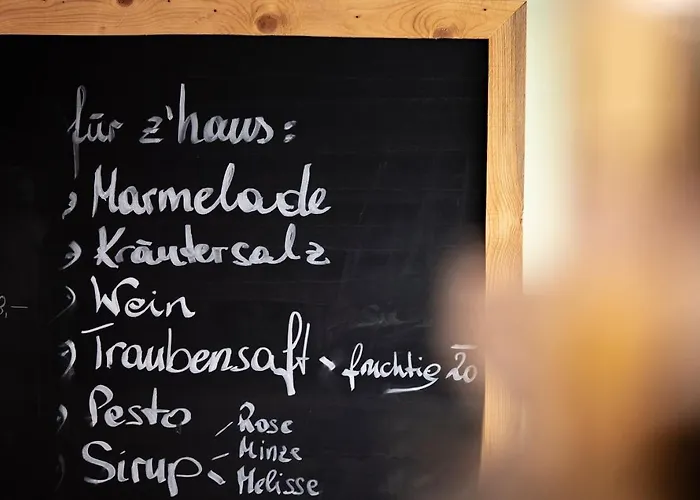 für z'haus:
Marmelade
Kräutersalz
Wein
Traubensaft - fruchtig
Pesto
Sirup - Rose
- Minze
- Melisse